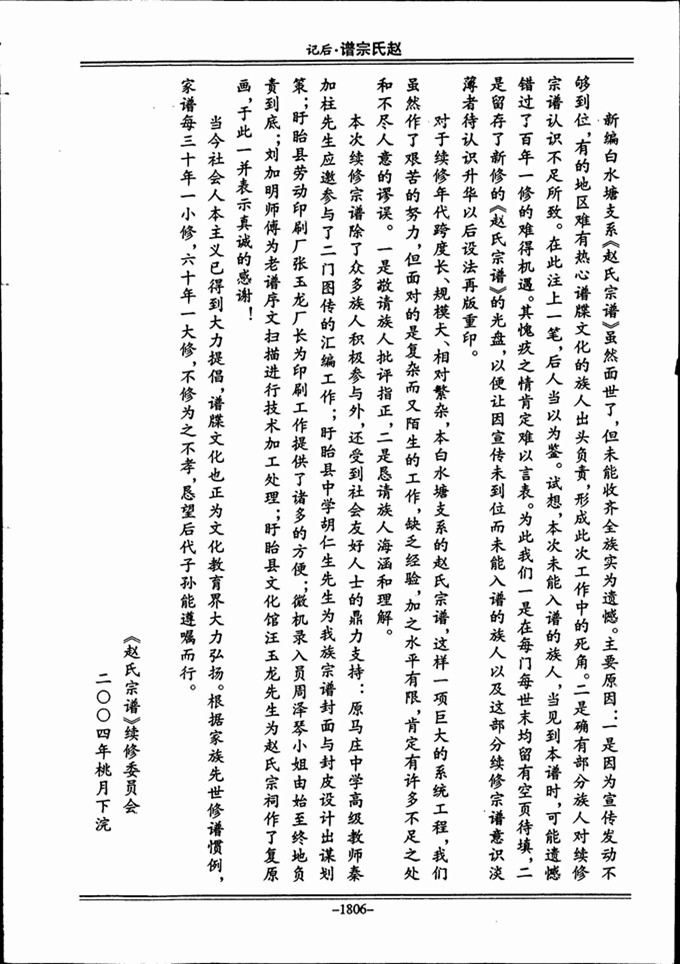 赵氏宗谱·后记
新编白水塘支系《赵氏宗谱》虽然面世了，但未能收齐全族实为遗憾。主要原因：一是因为宣传发动不
够到位，有的地区难有热心谱牒文化的族人出头负责，形成此次工作中的死角。二是确有部分族人对续修
宗谱认识不足所致。在此注上一笔，后人当以为鉴。试想，本次未能入谱的族人，当见到本谱时，可能遗憾
错过了百年一修的难得机遇。其愧疚之情肯定难以言表。为此我们一是在每门每世末均留有空页待填，二
是留存了新修的《赵氏宗谱》的光盘，以便让因宣传未到位而未能入谱的族人以及这部分续修宗谱意识淡
薄者待认识升华以后设法再版重印。
对于续修年代跨度长、规模大、相对繁杂，本白水塘支系的赵氏宗谱，这样一项巨大的系统工程，我们
虽然作了艰苦的努力，但面对的是复杂而又陌生的工作，缺乏经验，加之水平有限，肯定有许多不足之处
和不尽人意的谬误。一是敬请族人批评指正，二是恳请族人海涵和理解。
本次续修宗谱除了众多族人积极参与外，还受到社会友好人士的鼎力支持：原马庄中学高级教师秦
加柱先生应邀参与了二门图传的汇编工作；盱眙县中学胡仁生先生为我族宗谱封面与封皮设计出谋划
策；盱眙县劳动印刷厂张玉龙厂长为印刷工作提供了诸多的方便；微机录入员周泽琴小姐由始至终地负
责到底；刘加明师傅为老谱序文扫描进行技术加工处理；盱眙县文化馆汪玉龙先生为赵氏宗祠作了复原
画，于此一并表示真诚的感谢！
当今社会人本主义已得到大力提倡，谱牒文化也正为文化教育界大力弘扬。根据家族先世修谱惯例，
家谱每三十年一小修，六十年一大修，不修为之不孝，恳望后代子孙能遵嘱而行。
《赵氏宗谱》续修委员会
二〇〇四年桃月下浣
-1806-